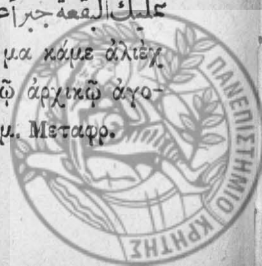 عليك البقعة جبرا
μα κάμε ἀλιέχ
ῷ ἀρχικῷ ἀγο-
μ. Μεταφρ.
ΠΑΝΕΠΙΣΤΗΜΙΟ ΚΡΗΤΗΣ